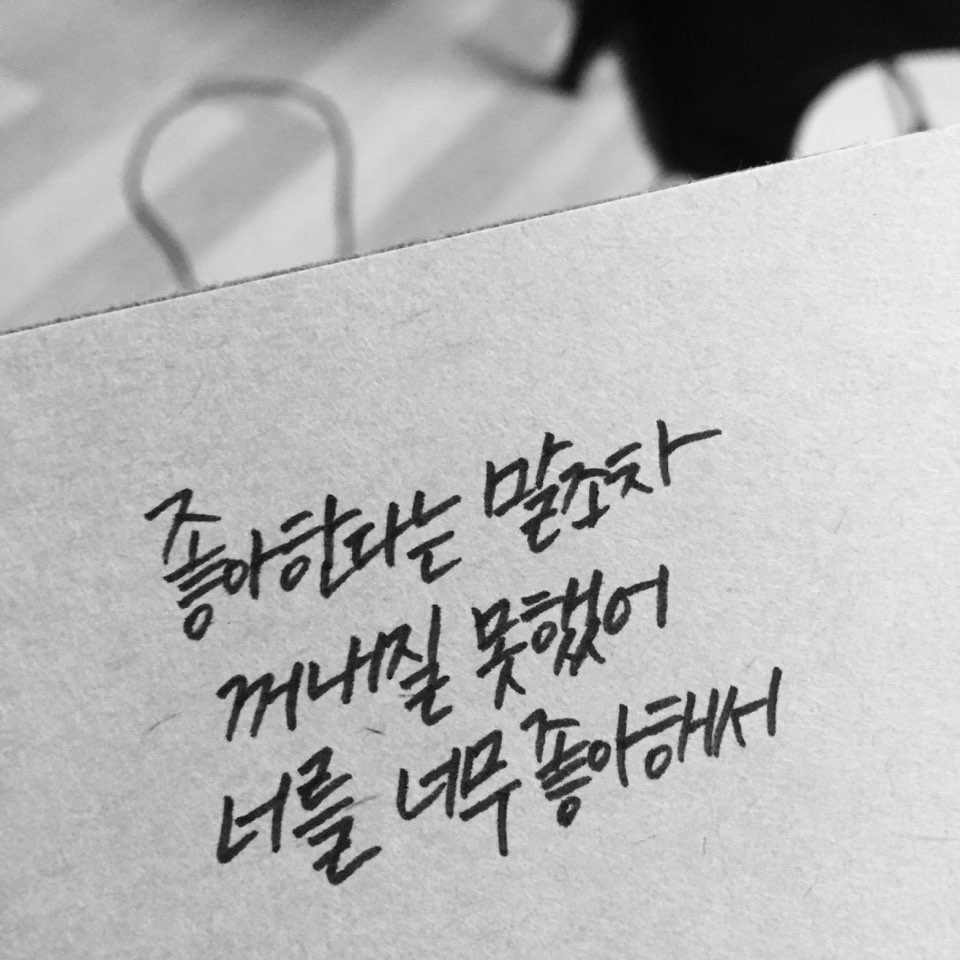 좋아한다는 말조차
꺼내질 못했어
너를 너무 좋아해서